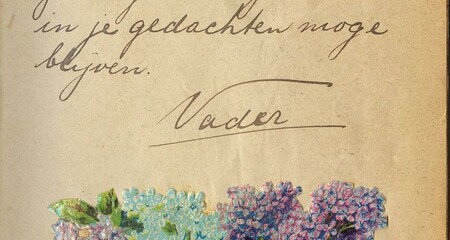 in je gedachten moge
blijven.
Vader